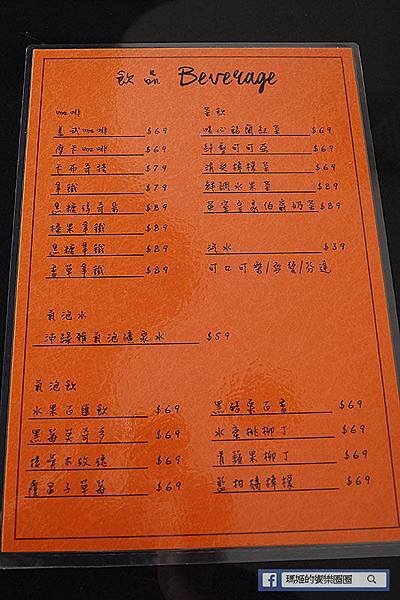 飲品 Beverage
咖啡
美式咖啡 $69
摩卡咖啡 $69
卡布奇諾 $79
拿鐵 $79
焦糖瑪奇朵 $89
榛果拿鐵 $89
黑糖拿鐵 $89
香草拿鐵 $89
茶飲
錫蘭紅茶 $69
可可亞 $69
檸檬茶 $69
鮮調水果茶 $89
皇室皇家伯爵奶茶 $89
汽水 $39
可口可樂/雪碧/芬達
氣泡水
沛綠雅氣泡礦泉水 $59
氣泡飲
水果百匯飲 $69
黑莓莫奇多 $69
接骨木玫瑰 $69
覆盆子草莓 $69
黑醋栗百香 $69
水蜜桃柳丁 $69
青蘋果柳丁 $69
藍柑橘檸檬 $69
瑪姬的饗樂圈圈